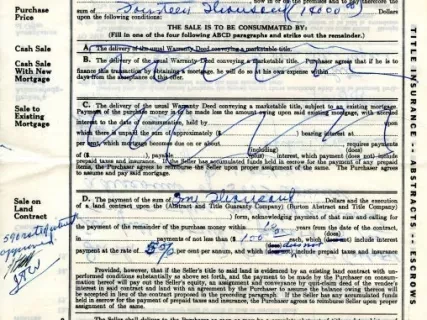 Purchase Price
now in or on the premises and to pay therefore the
sum of Fourteen Thousand (14000 Dollars
upon the following conditions:
THE SALE IS TO BE CONSUMMATED BY:
(Fill in one of the four following ABCD paragraphs and strike out the remainder.)
Cash Sale
A. The delivery of the usual Warranty Deed conveying a marketable title.
Cash Sale With New Mortgage
B. The delivery of the usual Warranty Deed conveying a marketable title. Purchaser agrees that if he is to
finance this transaction by obtaining a mortgage, he will do so at his own expense within
days from the acceptance of this offer.
Sale to Existing Mortgage
C. The delivery of the usual Warranty Deed conveying a marketable title, subject to an existing mortgage.
Payment of the purchase money is to be made less the amount owing upon said existing mortgage, with accrued
interest to the date of consummation, held by upon
which there is unpaid the sum of approximately ($ ) bearing interest at
per cent, which mortgage becomes due on or about requires payments
of ($ ), payable (including) (plus) interest, which payment (does) (does not) include
prepaid taxes and insurance. If the Seller has accumulated funds held in escrow for the payment of any prepaid
items, the Purchaser agrees to reimburse the Seller upon proper assignment of the same. The Purchaser agrees
to assume and pay said mortgage.
Sale on Land Contract
D. The payment of the sum of Thousand Dollars and the execution
of a land contract, upon the (Abstract and Title Guaranty Company) (Burton Abstract and Title Company)
form, acknowledging payment of that sum and calling for
the payment of the remainder of the purchase money within 10 years from the date of contract,
in payments of not less than ($ 100 00 each, which (does) (does not) include interest
payment at the rate of 5% per cent per annum, and which (does) does not include prepaid taxes and insurance.
Provided, however, that if the Seller's title to said land is evidenced by an existing land contract with un-
performed conditions substantially as above set forth, and the payment to be made by the Purchaser on consum-
mation hereof will pay out the Seller's equity, an assignment and conveyance by quit-claim deed of the vendor's
interest in said contract and land with an agreement by the Purchaser to assume the balance owing thereon will
be accepted in lieu of the contract proposed in the preceding paragraph. If the Seller has any accumulated funds
held in escrow for the payment of prepaid taxes and insurance, the Purchaser agrees to reimburse Seller upon proper
assignment of the same.
TITLE INSURANCE -- ABSTRACTS -- ESCROWS